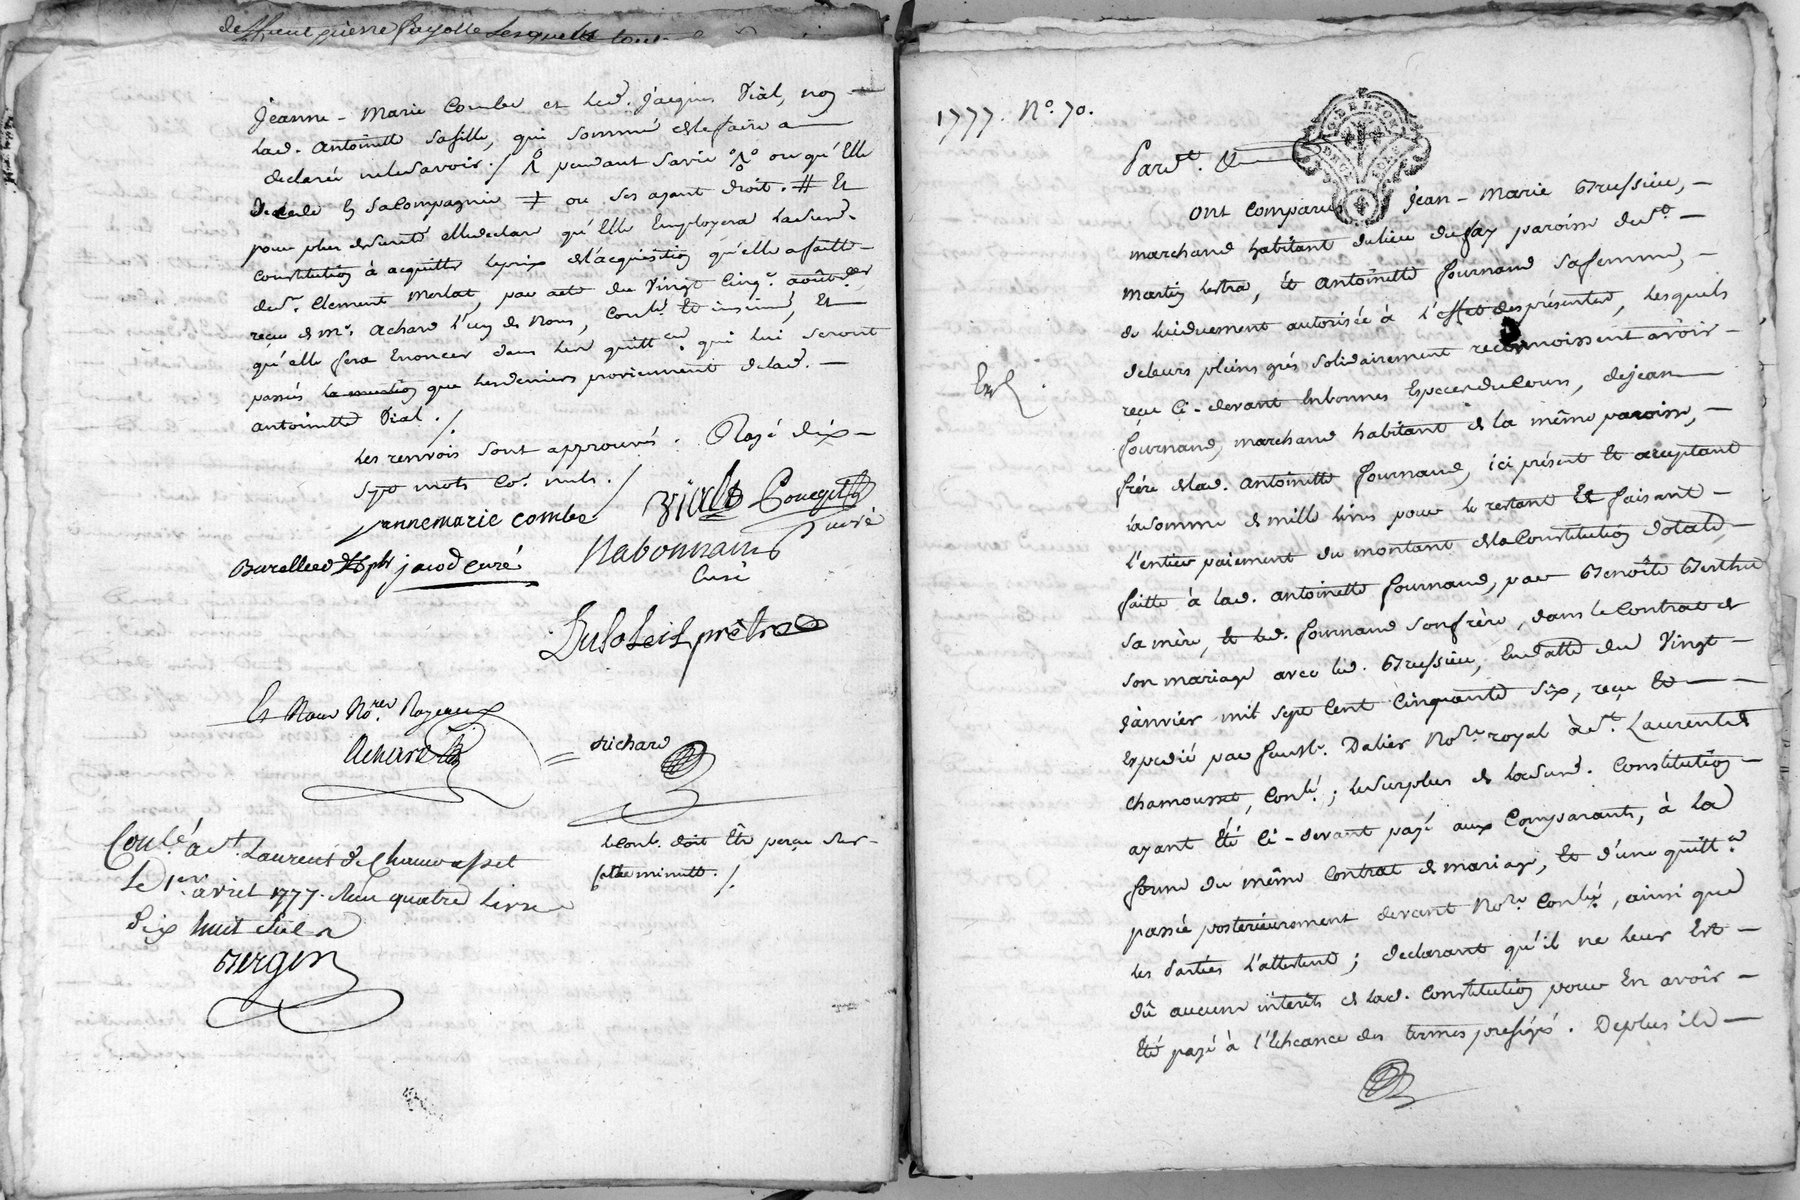 deffunt pierre fayolle lesquels tous
Jeanne - Marie Combe et led. Jacques Vial, non
lad. Antoinette sa fille, qui sommé de le faire a
declaré ne le savoir ./ pendant sa vie ou qu'elle
decede en sa Compagnie ou ses ayant droit. # Et
pour plus de sureté elle declare qu'Elle Employera lad. sud.
Constitution à acquitter le prix de l'acquisition qu'elle a faitte
de sr. Clement Merlat, par acte du Vingt Cinq août der
reçu de me. Achard l'un de Nous, Conlé. et insinué, Et
qu'elle fera Enoncer dans les quittces. qui lui seront
passées la mention que les deniers proviennent de lad.
antoinette Vial ./.
les renvois sont approuvés. Rayé dix
sept mots co. nuls ./
annemarie combe Vial Pouegit
curé
Burellier jacod curé
Nabonnain
Curé
Dusoleil prêtre
Et Nous Nores. Royaux
Achard
Richard
Conlé à st. Laurent de Chamousset
Le 1er avril 1777. Reçu quatre livres
Dix huit sols
Berger
le Conle. doit Etre perçu sur
cette minutte ./.
1777. No. 70.
G. DE LYON
Pardt. &
Ont Comparus Jean - Marie Brussieu,
marchand habitant du lieu du fay paroisse de St.
Martin lestra, et Antoinette fournand sa femme,
de lui duement autorisée à l'effet des présentes, lesquels
de leurs pleins grés solidairement reconnoissent avoir
reçu Ci-devant En bonnes Especes de Cours, de jean
fournand, marchand habitant de la même paroisse,
frère de lad. antoinette fournand, ici présent Et acceptant
la somme de mille livres pour le restant Et faisant
l'entier paiement du montant de la Constitution dotale,
faitte à lad. antoinette fournand, par Benoîte Berthe
sa mère, et led. fournand son frère, dans le Contrat de
son mariage avec led. Brussieu, En datte du Vingt
Janvier mil sept cent Cinquante six, reçu Et
Expedié par feu sr. Dalier Nore. royal à St. Laurent de
Chamousset, Conlé.; le surplus de lad. sud. Constitution
ayant Eté Ci-devant payé aux Comparants, à la
forme du même Contrat de mariage, Et d'une quittce.
passée postérieurement devant Nore. Conlée, ainsi que
les Parties l'attestent; declarant qu'il ne leur Est
dû aucuns intérêts de lad. Constitution pour En avoir
Eté payé à l'Echéance des termes prefigés. De plus ils